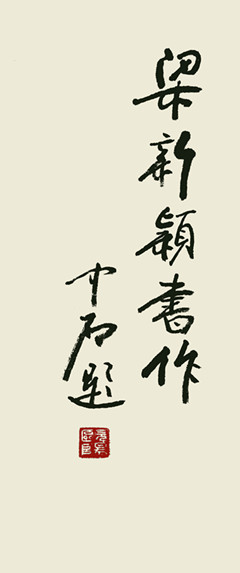 梁新颖書作
中石題